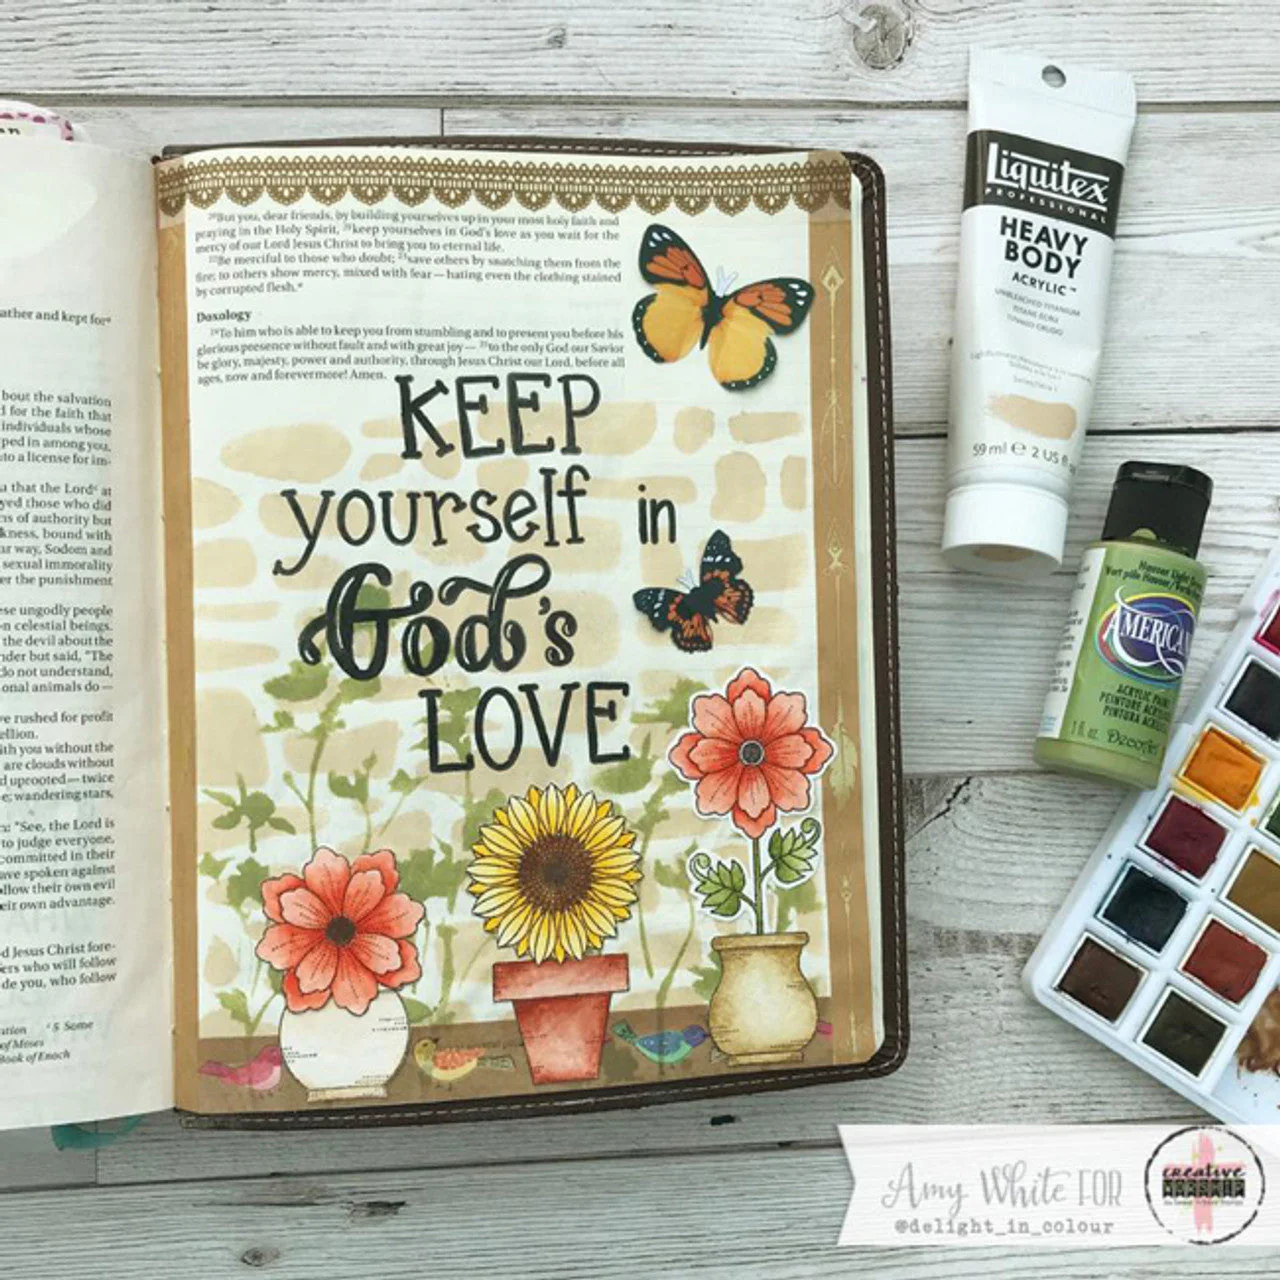 ather and kept for
bout the salvation
d for the faith that
individuals whose
ped in among you,
to a license for im-
u that the Lord at
yed those who did
ns of authority but
kness, bound with
ar way, Sodom and
sexual immorality
er the punishment
ese ungodly people
n celestial beings.
the devil about the
nder but said, "The
do not understand,
onal animals do —
ve rushed for profit
ellion.
ith you without the
are clouds without
d uprooted — twice
e; wandering stars,
: "See, the Lord is
to judge everyone,
committed in their
ave spoken against
llow their own evil
eir own advantage.
d Jesus Christ fore-
ers who will follow
de you, who follow
5 Some
of Moses
Book of Enoch
20 But you, dear friends, by building yourselves up in your most holy faith and
praying in the Holy Spirit, 21 keep yourselves in God's love as you wait for the
mercy of our Lord Jesus Christ to bring you to eternal life.
22 Be merciful to those who doubt; 23 save others by snatching them from the
fire; to others show mercy, mixed with fear — hating even the clothing stained
by corrupted flesh.
Doxology
24 To him who is able to keep you from stumbling and to present you before his
glorious presence without fault and with great joy — 25 to the only God our Savior
be glory, majesty, power and authority, through Jesus Christ our Lord, before all
ages, now and forevermore! Amen.
KEEP
yourself in
God's
LOVE
Liquitex
PROFESSIONAL
HEAVY
BODY
ACRYLIC™
UNBLEACHED TITANIUM
TITANE ÉCRU
TITANIO CRUDO
59 ml ℮ 2 US fl
Hauser Light Green
Vert pâle Hauser
AMERICAN
ACRYLIC PAINT
PEINTURE ACRYLIQUE
PINTURA ACRÍLICA
fl oz. DecoArt
Amy White FOR
@delight_in_colour
creative
WORSHIP